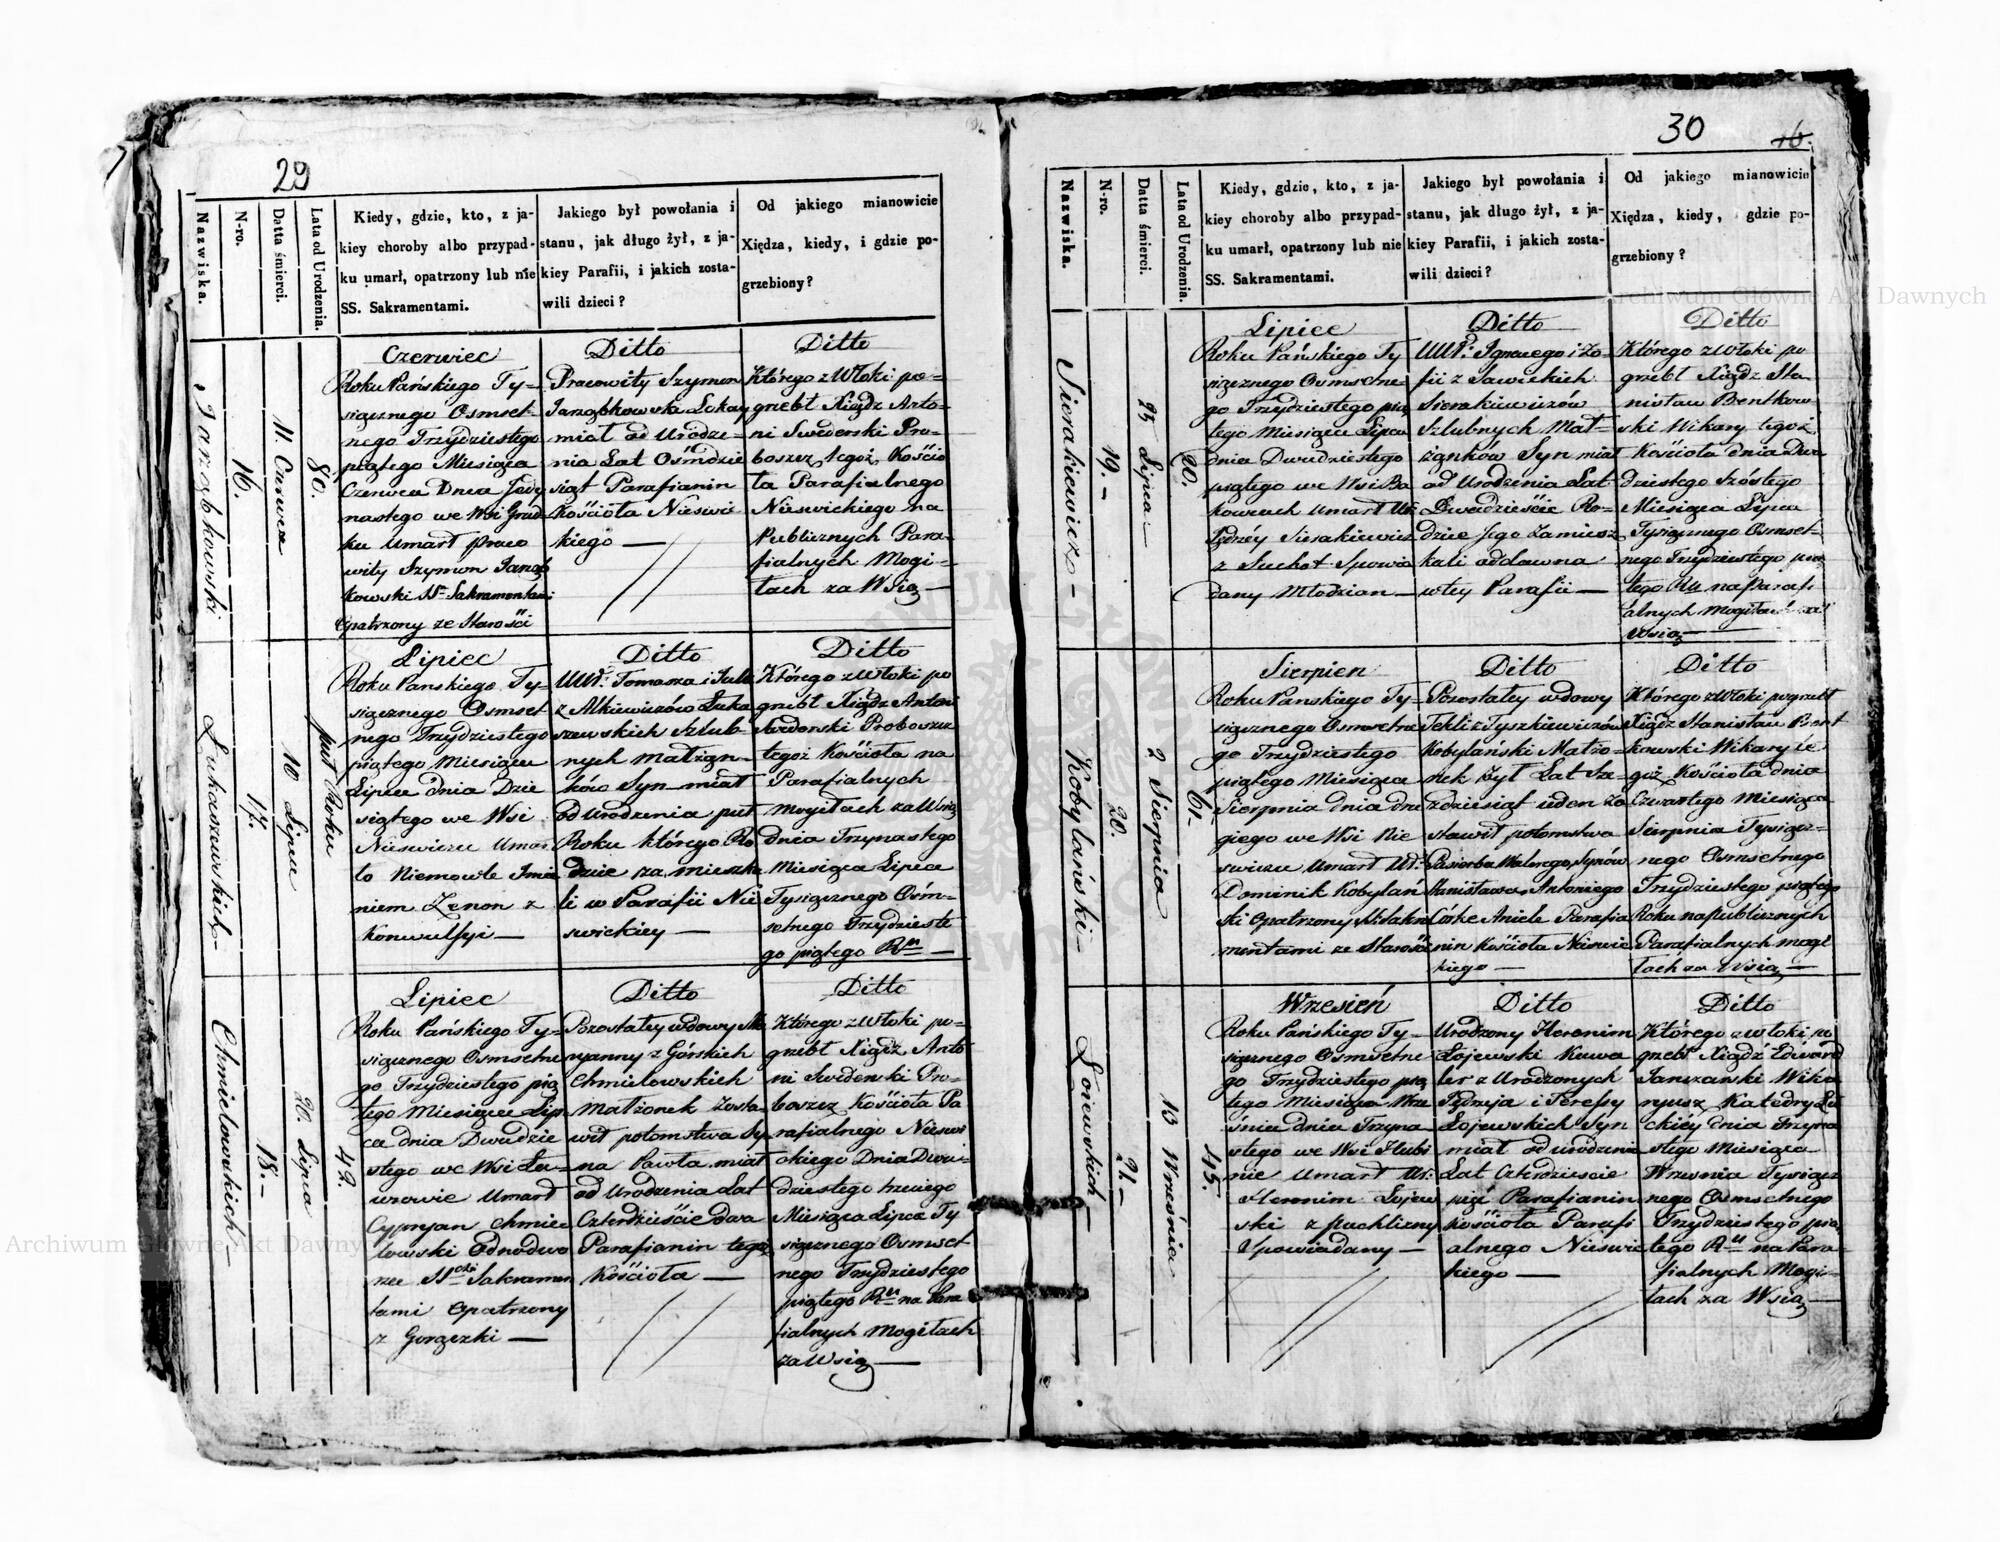 29
Nazwiska.
N-ro.
Datta śmierci.
Lata od Urodzenia.
Kiedy, gdzie, kto, z ja-
kiey choroby albo przypad-
ku umarł, opatrzony lub nie
SS. Sakramentami.
Jakiego był powołania i
stanu, jak długo żył, z ja-
kiey Parafii, i jakich zosta-
wili dzieci?
Od jakiego mianowicie
Xiędza, kiedy, i gdzie po-
grzebiony?
Jarząbkowski
16.
11. Czerwca
80.
Czerwiec
Roku Pańskiego Ty-
siącznego Osmset-
nego Trzydziestego
piątego Miesiąca
Czerwca Dnia Jedy
nastego we Wsi Grud
ku Umarł Praco
wity Szymon Jarząb
kowski SS. Sakramentami
Opatrzony ze Starości
Ditto
Pracowity Szymon
Jarząbkowski Lokay
miał od Urodze-
nia Lat Ośmdzie
siąt Parafianin
Kościoła Nieswic
kiego —
Ditto
Którego zwłoki po-
grzebł Xiądz Anto-
ni Swiderski Pro-
boszcz tegoż Kościo
ła Parafialnego
Nieswickiego na
Publicznych Para-
fialnych Mogi-
łach za Wsią —
Łukaszewskich
17.
10 Lipca
puł Roku
Lipiec
Roku Panskiego Ty-
siącznego Osmset
nego Trzydziestego
piątego Miesiąca
Lipca dnia Dzie
siątego we Wsi
Nieswiczu Umar
ło Niemowle Imie
niem Zenon z
Konwulsyi —
Ditto
WW. Tomasza i Julii
z Alkiewiczów Łuka
szewskich Szlub-
nych małżon-
ków Syn miał
od Urodzenia puł
Roku którego Ro
dzice zamieszka
li w Parafii Nie
swickiey —
Ditto
Którego zwłoki po
grzebł Xiądz Antoni
Swiderski Proboszcz
tegoż Kościoła na
Parafialnych
Mogiłach za Wsią
dnia Trzynastego
Miesiąca Lipca
Tysiącznego Osm-
setnego Trzydzieste
go piątego Ru —
Chmielowskich
18. —
20. Lipca
42.
Lipiec
Roku Pańskiego Ty-
siącznego Osmsetne
go Trzydziestego pią
tego Miesiąca Lip
ca dnia Dwudzie
stego we Wsi
Umarł
Cypryan Chmie
lowski Ednodwo
rzec SS. Sakramen
tami Opatrzony
z Gorączki —
Ditto
Pozostałey wdowy Ma
ryanny z Górskich
Chmielowskich
Małżonek zosta
wił potomstwa Sy
na Pawła miał
od Urodzenia Lat
Czterdzieście dwa
Parafianin tegoż
Kościoła —
Ditto
Którego zwłoki po-
grzebł Xiądz Anto
ni Swiderski Pro-
boszcz Kościoła Pa
rafialnego Nieswi
ckiego Dnia Dwu-
dziestego trzeciego
Miesiąca Lipca Ty
siącznego Osmset
nego Trzydziestego
piątego Ru na Para
fialnych Mogiłach
za Wsią —
30
16.
Nazwiska.
N-ro.
Datta śmierci.
Lata od Urodzenia.
Kiedy, gdzie, kto, z ja-
kiey choroby albo przypad-
ku umarł, opatrzony lub nie
SS. Sakramentami.
Jakiego był powołania i
stanu, jak długo żył, z ja-
kiey Parafii, i jakich zosta-
wili dzieci?
Od jakiego mianowicie
Xiędza, kiedy, gdzie po-
grzebiony?
Sierakiewicz —
19. —
25 Lipca —
20.
Lipiec
Roku Pańskiego Ty
siącznego Osmsetne
go Trzydziestego pią
tego Miesiąca Lipca
dnia Dwudziestego
piątego we Wsi Ba
kowcach Umarł Ur:
Jędrzey Sierakiewicz
z Suchot Spowia
dany Młodzian —
Ditto
WW. Ignacego i Zo-
fii z Sawickich
Sierakiewiczów
Szlubnych Mał-
żonków Syn miał
od Urodzenia Lat
Dwadzieście Ro-
dzice Jego Zamiesz
kali oddawna
w tey Parafii —
Ditto
Którego zwłoki po
grzebł Xiądz Sta
nisław Bentkow
ski Wikary tegoż
Kościoła dnia Dwu
dziestego Szóstego
Miesiąca Lipca
Tysiącznego Osmset-
nego Trzydziestego pią
tego Ru na Parafi
alnych Mogiłach za
Wsią —
Kobylański —
20.
2 Sierpnia
61 —
Sierpien
Roku Panskiego Ty-
siącznego Osmsetne
go Trzydziestego
piątego Miesiąca
Sierpnia dnia dru
giego we Wsi Nie
swiczu Umarł Ur:
Dominik Kobylań
ski Opatrzony SS. Sakra
mentami ze Starości
Ditto
Pozostałey wdowy
Tekli z Tyszkiewiczów
Kobylański Małżo-
nek żył Lat Sze-
zdziesiąt ieden Zo
stawił potomstwa
Pasierba Walerego, Synów
Stanisława, Antoniego
Córke Aniele Parafia
nin Kościoła Nieswic
kiego —
Ditto
Którego zwłoki pogrzebł
Xiądz Stanisław Bent
kowski Wikary te
goż Kościoła dnia
Czwartego Miesiąca
Sierpnia Tysiącz-
nego Osmsetnego
Trzydziestego piątego
Roku na Publicznych
Parafialnych mogi
łach za Wsią —
Łoiewskich —
21. —
13 Wrześnica
45.
Wrzesień
Roku Pańskiego Ty-
siącznego Osmsetne
go Trzydziestego pią
tego Miesiąca Wrze
śnia dnia Trzyna
stego we Wsi Hubi
nie Umarł Ur:
Heronim Łojew
ski z puchliny
Spowiadany —
Ditto
Urodzony Heronim
Łojewski Kawa
ler z Urodzonych
Jędrzeja i Teressy
Łojewskich Syn
miał od urodzenia
Lat Czterdzieście
pięć Parafianin
Kościoła Parafi
alnego Nieswic
kiego —
Ditto
Którego zwłoki po
grzebł Xiądz Edward
Janczarski Wika
ryusz Katedry Łu
ckiéy dnia Trzyna
stego Miesiąca
Września Tysiącz
nego Osmsetnego
Trzydziestego pią
tego Ru na Para
fialnych Mogi-
łach za Wsią —
Archiwum Główne Akt Dawnych
Archiwum Główne Akt Dawnych